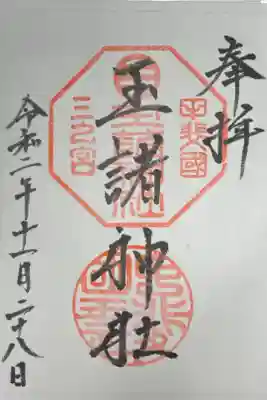 奉拝
甲斐國
玉諸神社
三之宮
令和二年十一月二十八日